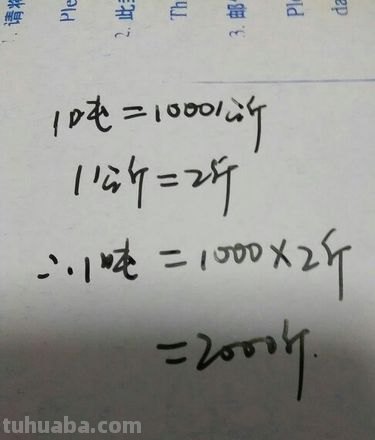 1. 请将
Ple
2. 此
Th
3. 邮
Pl
da
1吨=1000公斤
1公斤=2斤
∴1吨=1000×2斤
=2000斤.
tuhuaba.com